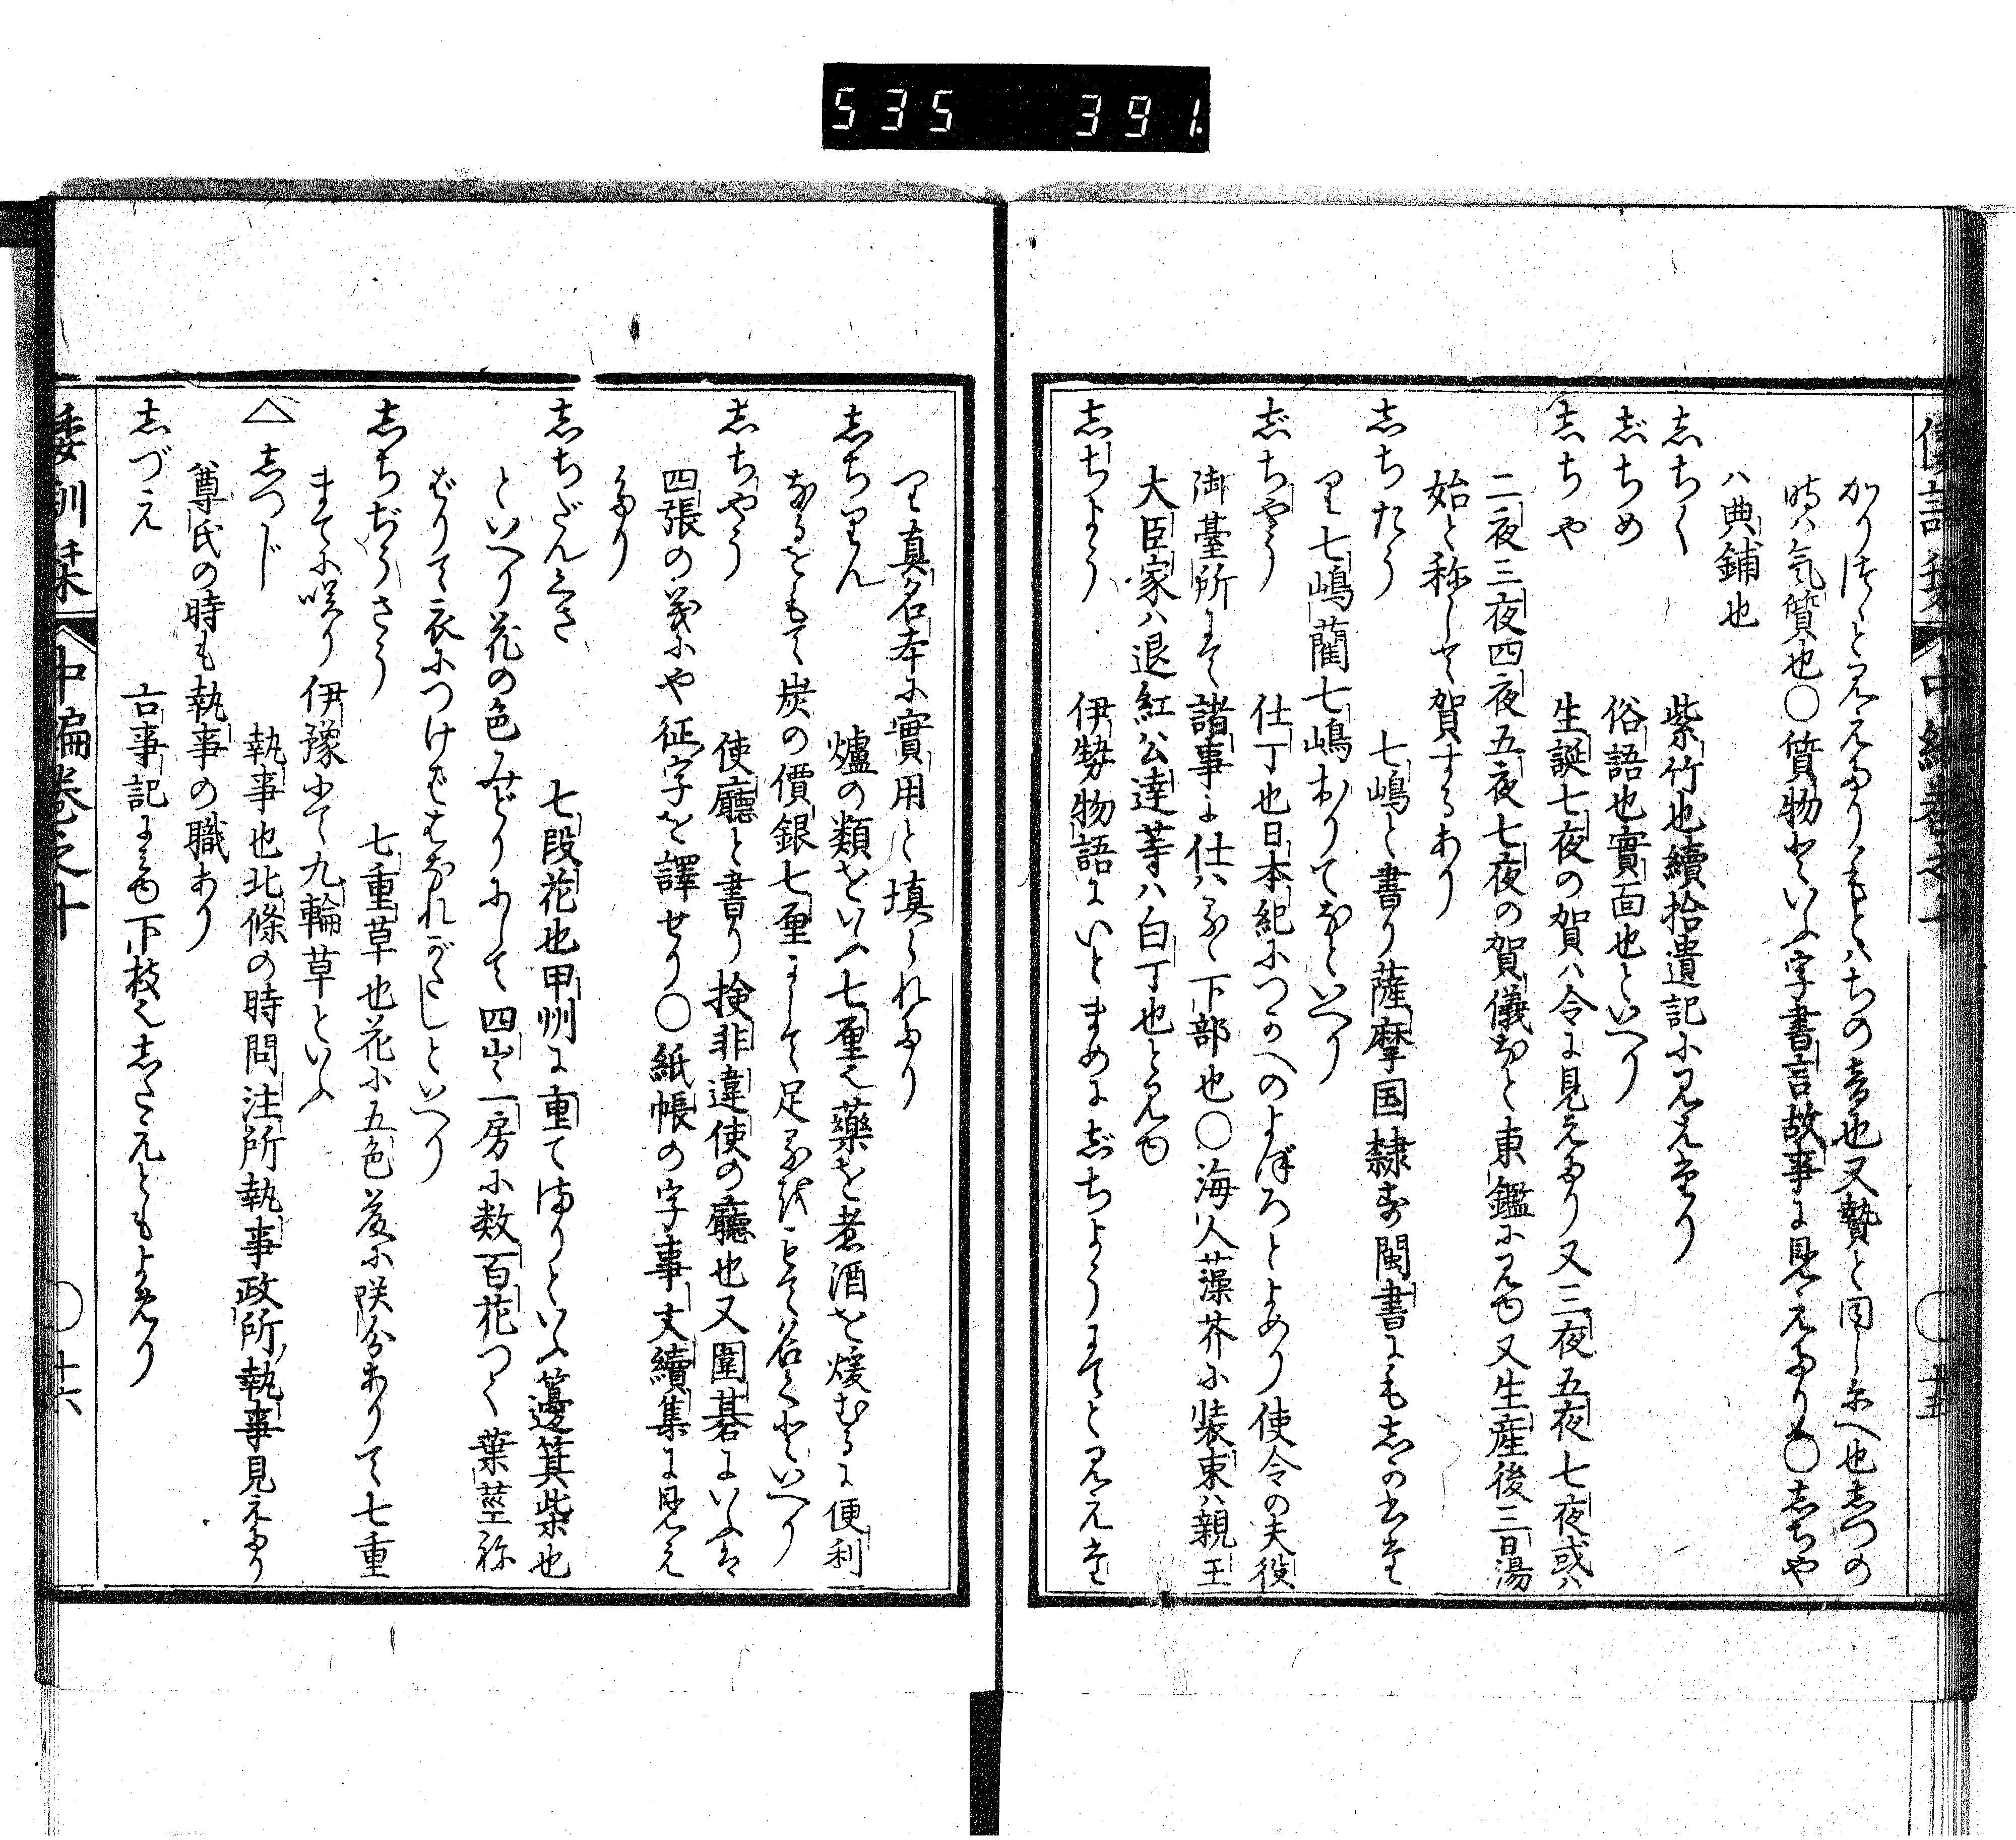 535 391.
かり流とみえたりもとハちの音也又贄と同しかへ也志つの
時ハ気質也〇質物といふ字書言故事に見えたり〇志ちや
ハ典鋪也
志ちく 紫竹也續拾遺記にみえたり
志ちめ 俗語也實面也といへり
志ちや 生誕七夜の賀ハ令に見えたり又三夜五夜七夜或ハ
二夜三夜四夜五夜七夜の賀儀なと東鑑にみゆ又生産後三日湯
始と称して賀するあり
志ちたう 七嶋と書り薩摩国隷す閩書にも志のた
り七嶋藺七嶋ありてなといへり
志ぢやう 仕丁也日本紀につかへのよぼろとよめり使令の夫役
御臺所にて諸事に仕ハるゝ下部也〇海人藻芥に装束ハ親王
大臣家ハ退紅公達等ハ白丁也とみゆ
志ぢよう 伊勢物語にいとまめに志ちようにてとみえた
り真名本に實用と填られたり
志ちりん 爐の類をいふ七厘也藥を煮酒を煖むるに便利
なるをもて炭の價銀七厘にして足るをもて名くといへり
志ちやう 使廳と書り検非違使の廳也又圍碁にいふは
四張の義にや征字を譯せり〇紙帳の字事文續集に見え
たり
志ちだんくさ 七段花也甲州に重てありといふ蕿箕柴也
といへり花の色みどりにして四出一房に数百花つく葉莖称
ばりて衣につけばはなれがたしといへり
志ちぢうさう 七重草也花に五色茂に咲分ありて七重
まてに咲り伊豫にて九輪草といふ
△志つじ 執事也北條の時問注所執事政所執事見えたり
尊氏の時も執事の職あり
志づえ 古事記にみゆ下枝也志たえともよめり
倭訓栞 中編巻之十 〇十五
倭訓栞 中編巻之十 〇十六